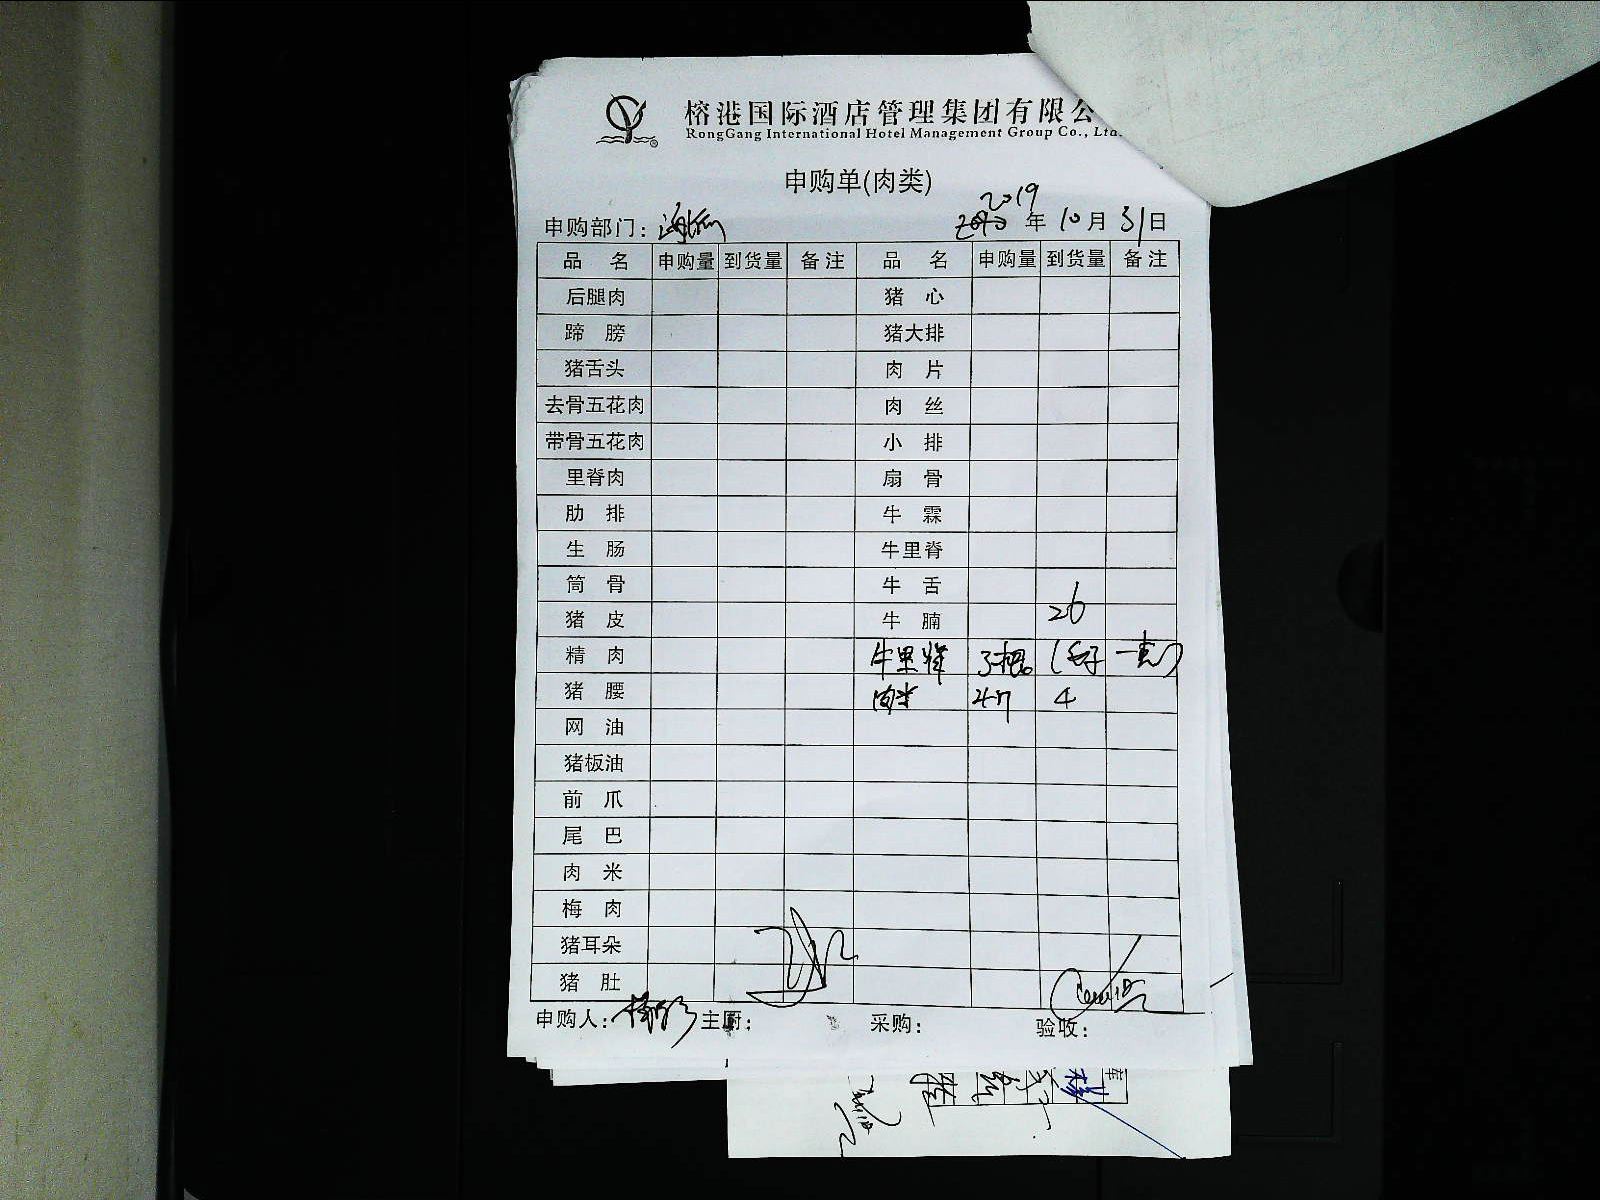 榕港国际酒店管理集团有限公
RongGang International Hotel Management Group Co., Ltd.
申购单(肉类)
2019
申购部门: 年 10月 31日
品 名 申购量 到货量 备注 品 名 申购量 到货量 备注
后腿肉 猪 心
蹄 膀 猪大排
猪舌头 肉 片
去骨五花肉 肉 丝
带骨五花肉 小 排
里脊肉 扇 骨
肋 排 牛 霖
生 肠 牛里脊
筒 骨 牛 舌
猪 皮 牛 腩 26
精 肉 牛里脊 3根
猪 腰 肉米 4斤 4
网 油
猪板油
前 爪
尾 巴
肉 米
梅 肉
猪耳朵
猪 肚
申购人: 主厨: 采购: 验收: